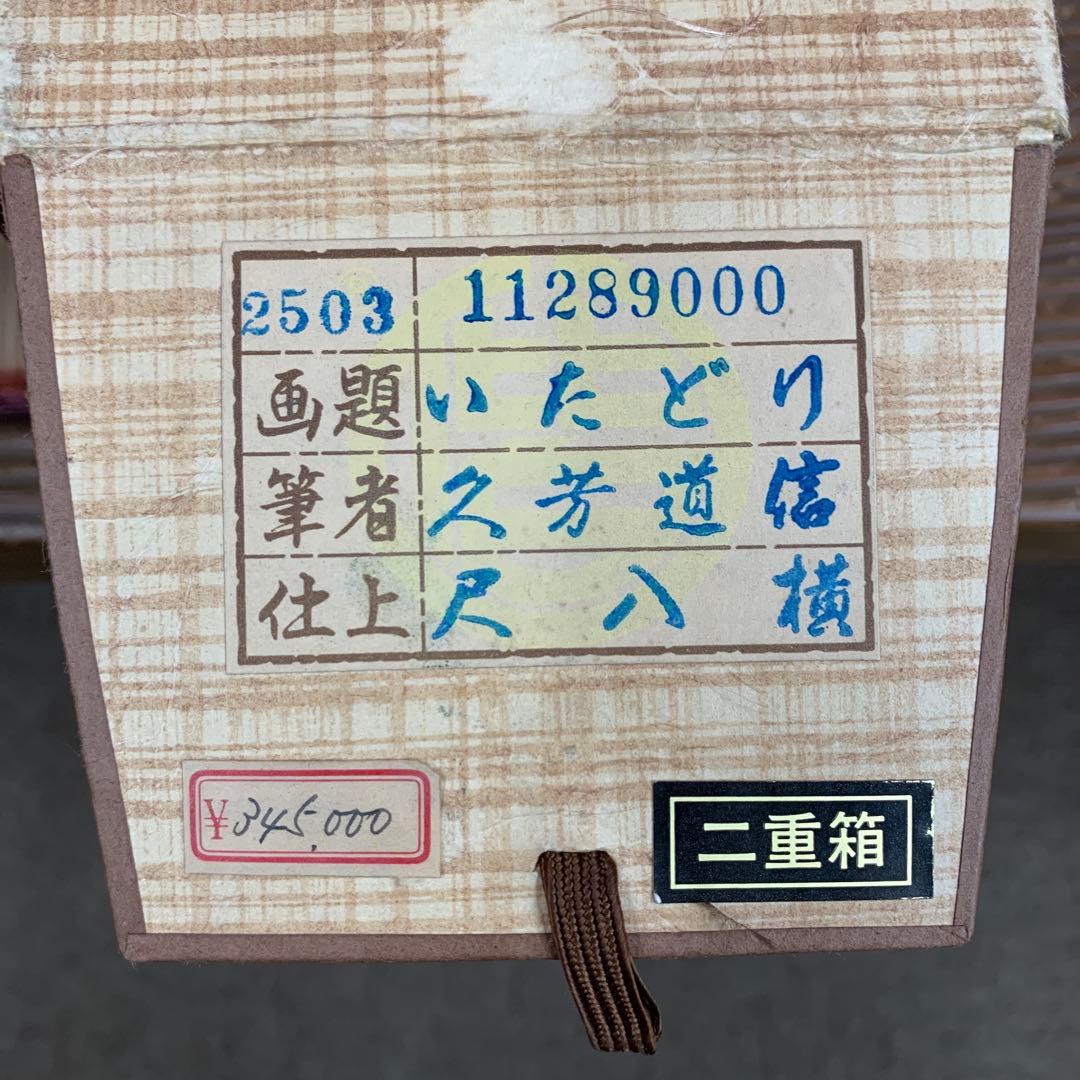 2503 11289000
画題 いたどり
筆者 久芳道信
仕上 尺八横
¥345,000
二重箱